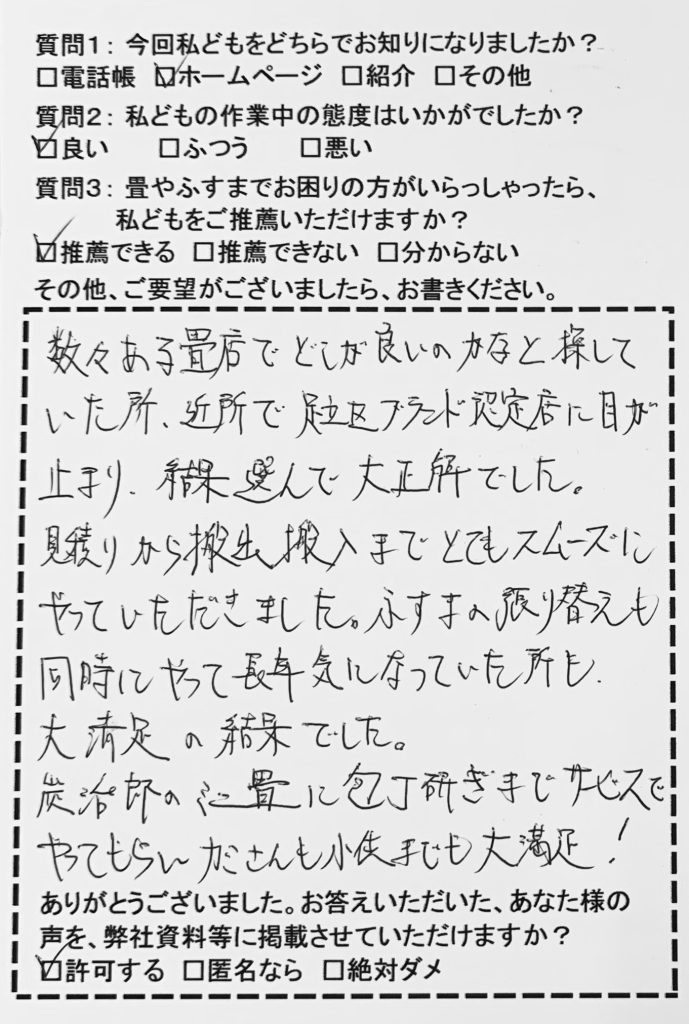 質問1：今回私どもをどちらでお知りになりましたか？
□電話帳 ☑ホームページ □紹介 □その他
質問2：私どもの作業中の態度はいかがでしたか？
☑良い □ふつう □悪い
質問3：畳やふすまでお困りの方がいらっしゃったら、
私どもをご推薦いただけますか？
☑推薦できる □推薦できない □分からない
その他、ご要望がございましたら、お書きください。
数々ある畳店でどこが良いのかなと探して
いた所、近所で足立区ブランド認定店に目が
止まり、結果選んで大正解でした。
見積りから搬出搬入までとてもスムーズに
やっていただきました。ふすまの張り替えも
同時にやって長年気になっていた所も、
大満足の結果でした。
炭治郎のミニ畳に包丁研ぎまでサービスで
やってもらい カミさんも小供までも大満足！
ありがとうございました。お答えいただいた、あなた様の
声を、弊社資料等に掲載させていただけますか？
☑許可する □匿名なら □絶対ダメ